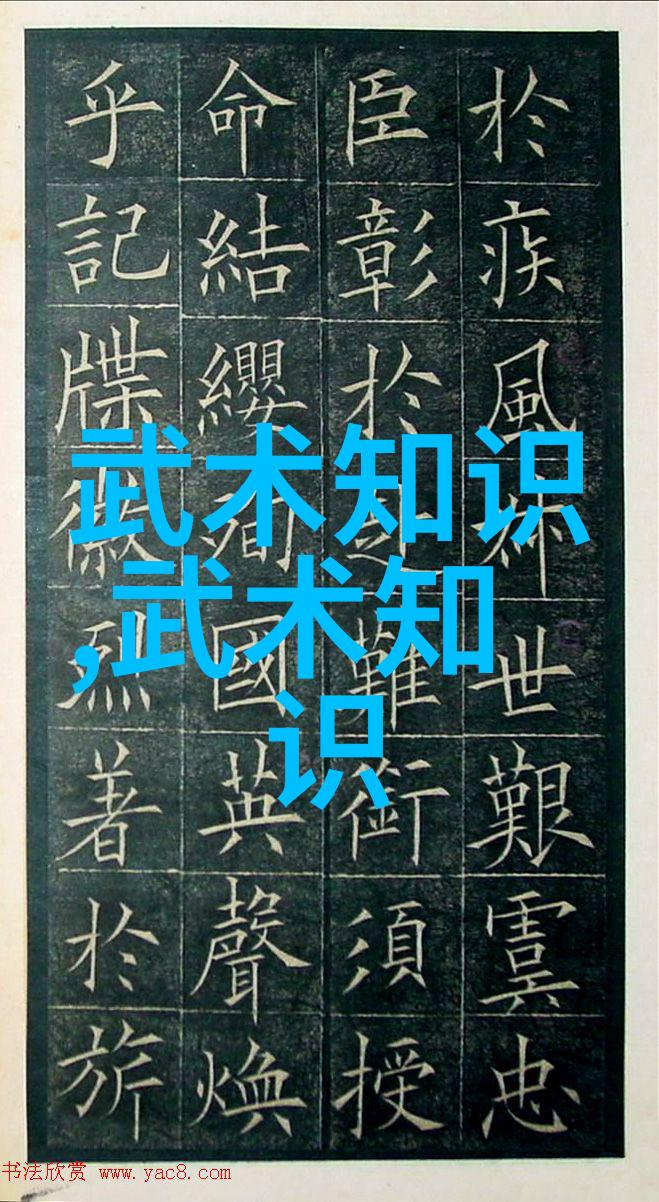 於疾風叔世艱虞忠
臣彰於赴難銜須授
命結纓殉國英聲煥
乎記牒徽烈著於旂
武术知识
,武术知
识
书法欣赏 www.yac8.com